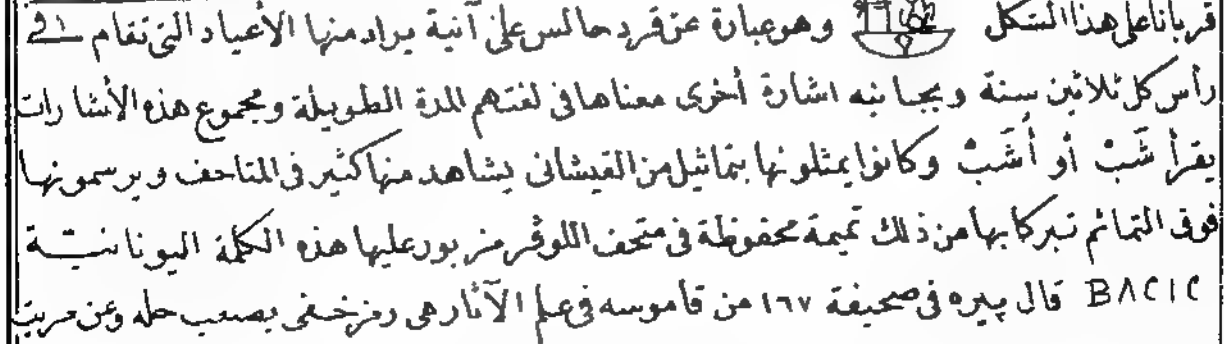 قرباناعلى هذا الشكل وهو عبارة عن قرد جالس على آنية يراد منها الأعياد التى تقام فى
رأس كل ثلاثين سنة وبجانبه اشارة أخرى معناها فى لغتهم المدة الطويلة ومجموع هذه الأشارات
يقرأ شَبْ أو أُشَبْ وكانوا يمثلونها بتماثيل من القيشانى يشاهد منها كثير فى المتاحف ويرسمونها
فوق التمائم تبركا بها من ذلك تميمة محفوظة فى متحف اللوڤر مزبور عليها هذه الكلمة اليونانية
BACIC قال پيره فى صحيفة ١٦٧ من قاموسه فى علم الآثار هى رمز خفى يصعب حله وعن مريت